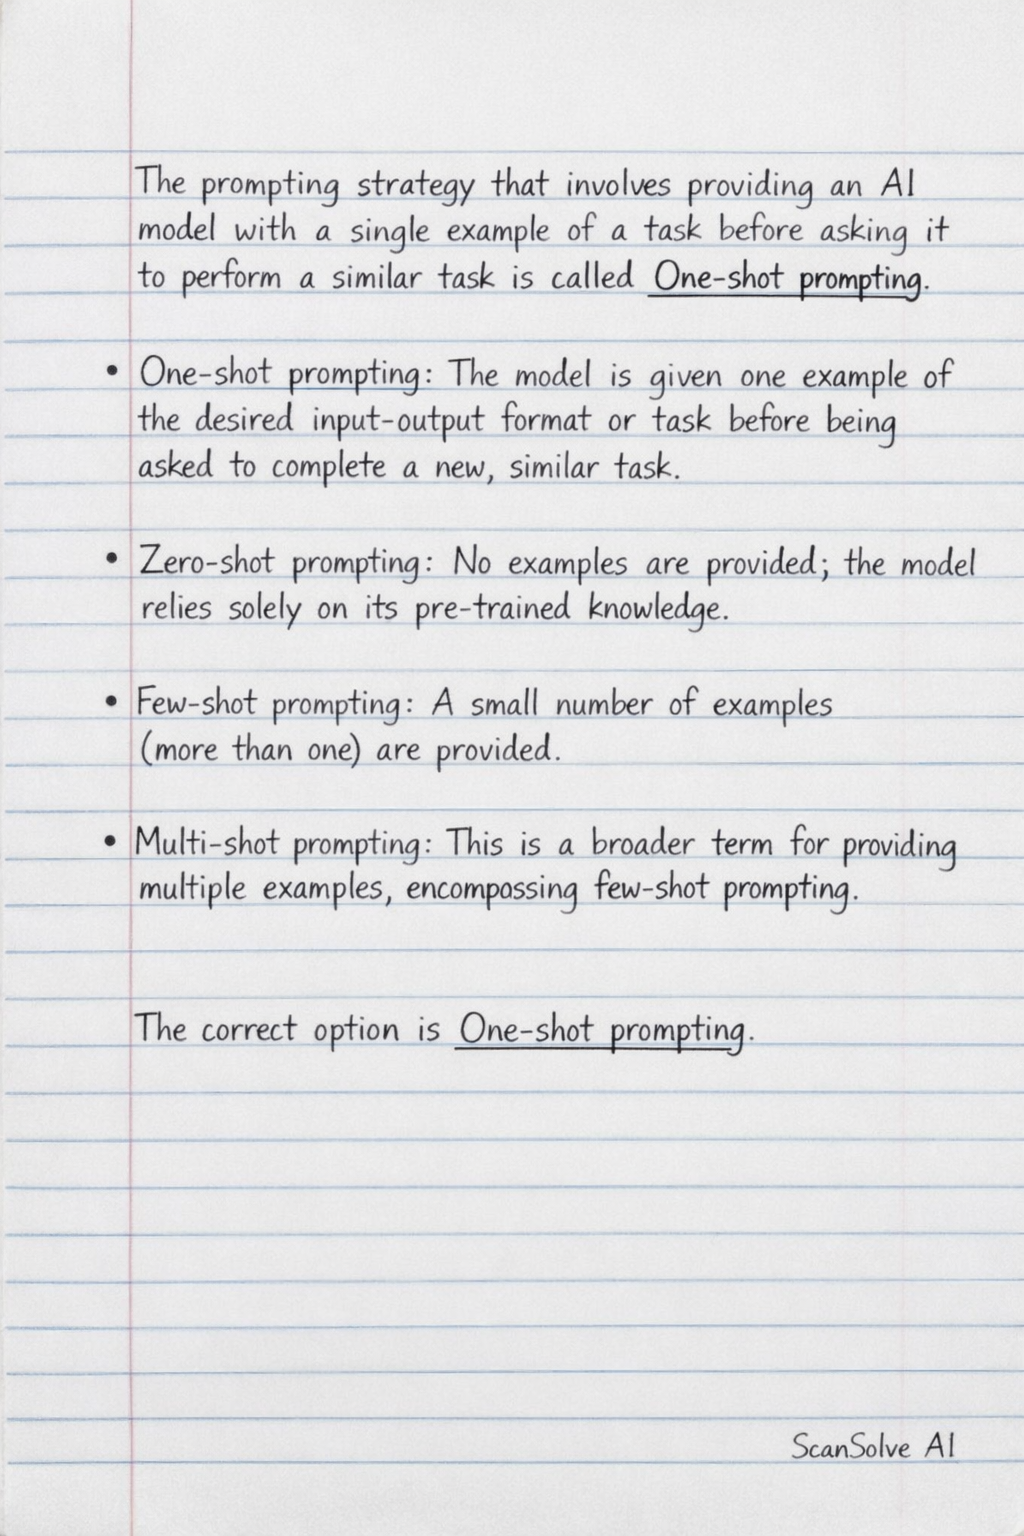 The prompting strategy that involves providing an AI
model with a single example of a task before asking it
to perform a similar task is called One-shot prompting.
• One-shot prompting: The model is given one example of
the desired input-output format or task before being
asked to complete a new, similar task.
• Zero-shot prompting: No examples are provided; the model
relies solely on its pre-trained knowledge.
• Few-shot prompting: A small number of examples
(more than one) are provided.
• Multi-shot prompting: This is a broader term for providing
multiple examples, encompossing few-shot prompting.
The correct option is One-shot prompting.
ScanSolve AI